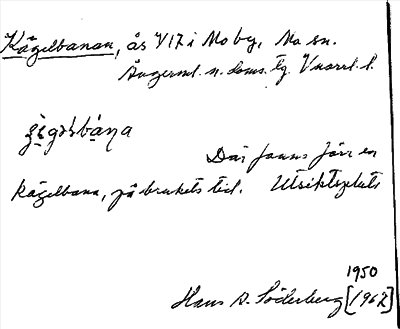 Kägelbanan, ås V17 i Moby, Mo sn.
Ångerml. n. doms. tg. Vnorrl. l.
Där fanns förr en
kägelbana, på brukets tid. Utsiktsplats
1950
Hans D. Söderberg [1962]